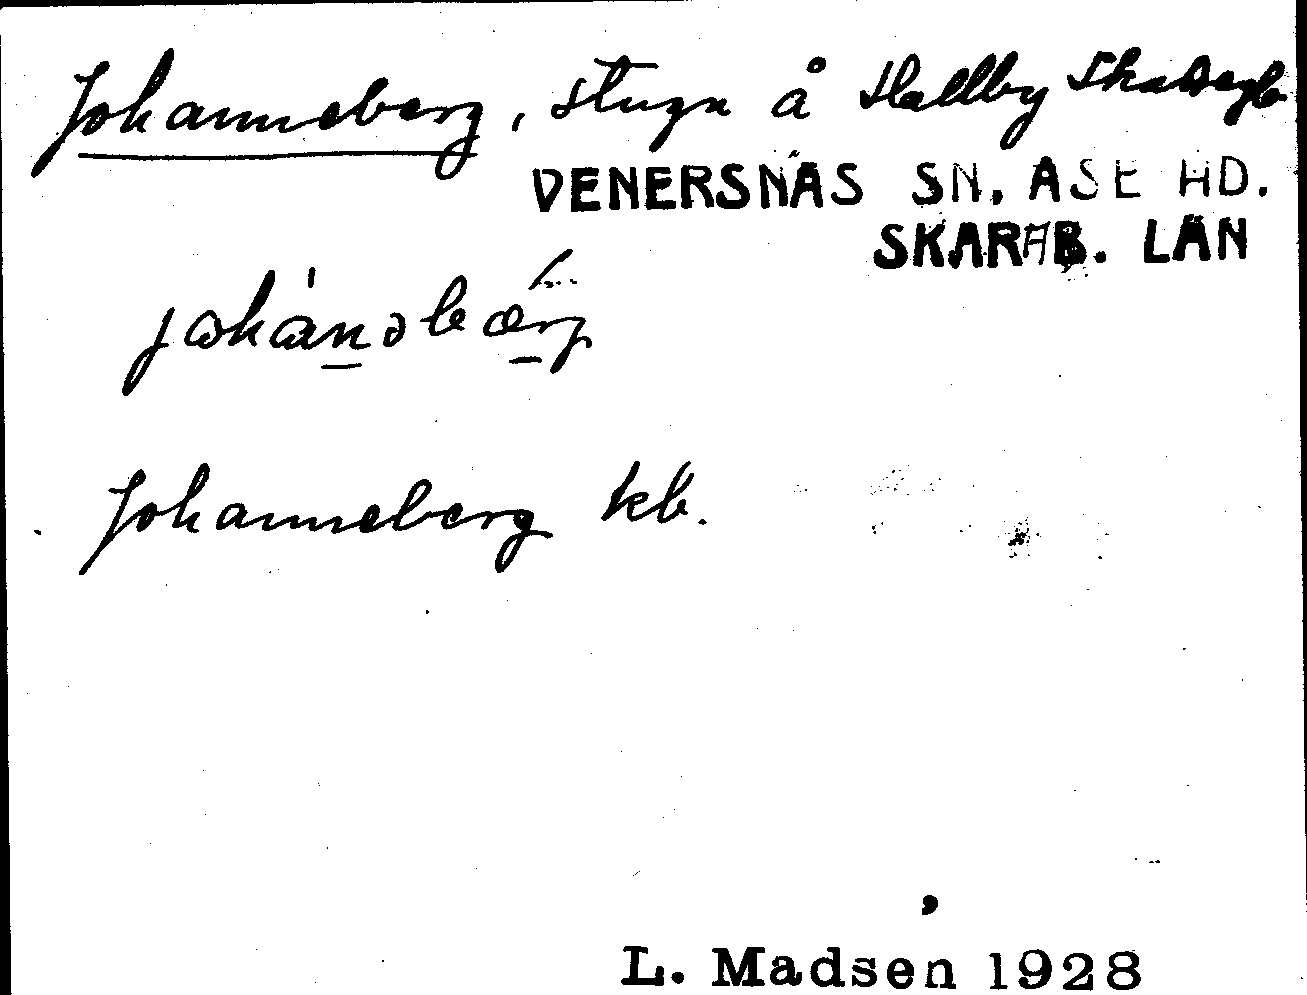 Johanneberg, stuga å Hallby Skattegb
VENERSNÄS SN. ASE HD.
SKARAB. LÄN
Johanneberg kb.
L. Madsen 1928